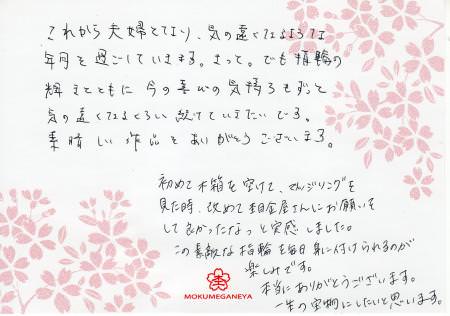 これから夫婦となり、気の遠くなるような
年月を過ごしていきます。きっと。でも指輪の
輝きとともに今の喜びの気持ちもずっと
気の遠くなるくらい続けていきたいです。
素晴しい作品をありがとうございます。
初めて木箱を空けて、さんじリングを
見た時、改めて杢目金屋さんにお願いを
して良かったなっと実感しました。
この素敵な指輪を毎日身に付けられるのが
楽しみです。
本当にありがとうございます。
一生の宝物にしたいと思います。
MOKUMEGANEYA